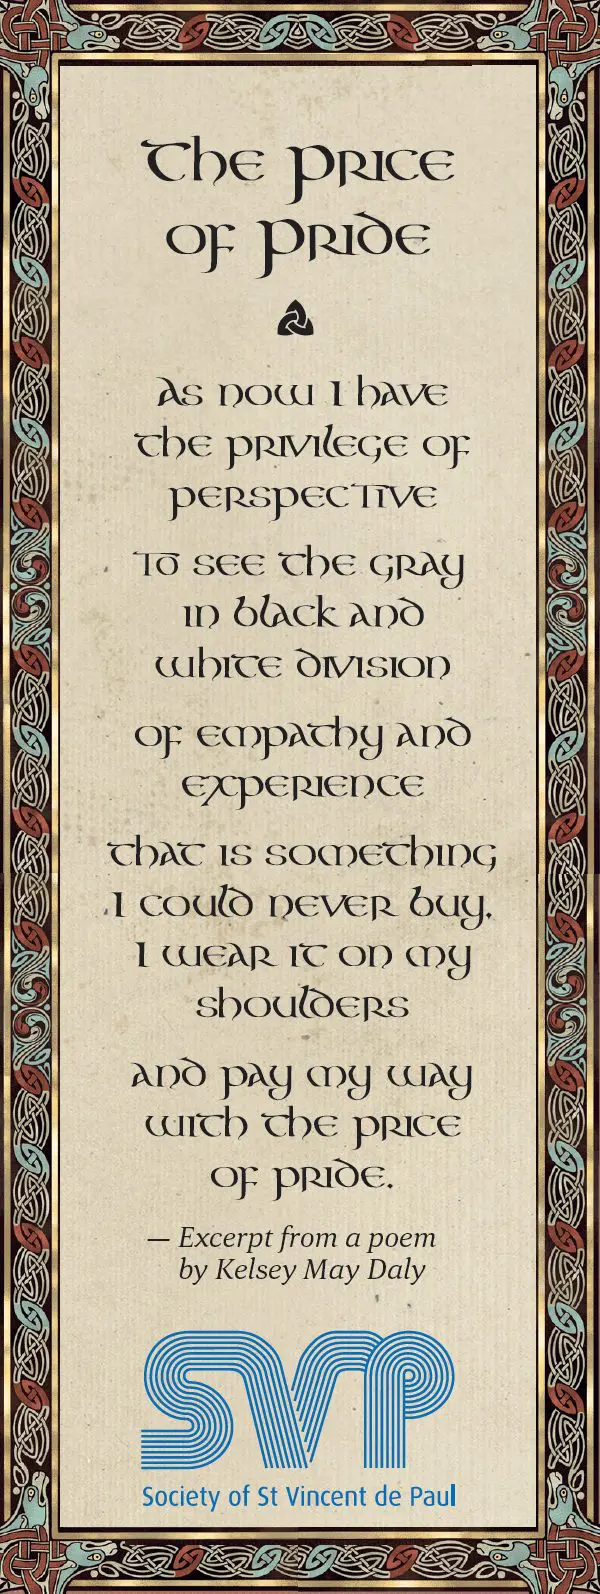 The Price
of Pride
As now I have
the privilege of
perspective
To see the gray
in black and
white division
of empathy and
experience
that is something
I could never buy.
I wear it on my
shoulders
and pay my way
with the price
of pride.
— Excerpt from a poem
by Kelsey May Daly
SVP
Society of St Vincent de Paul